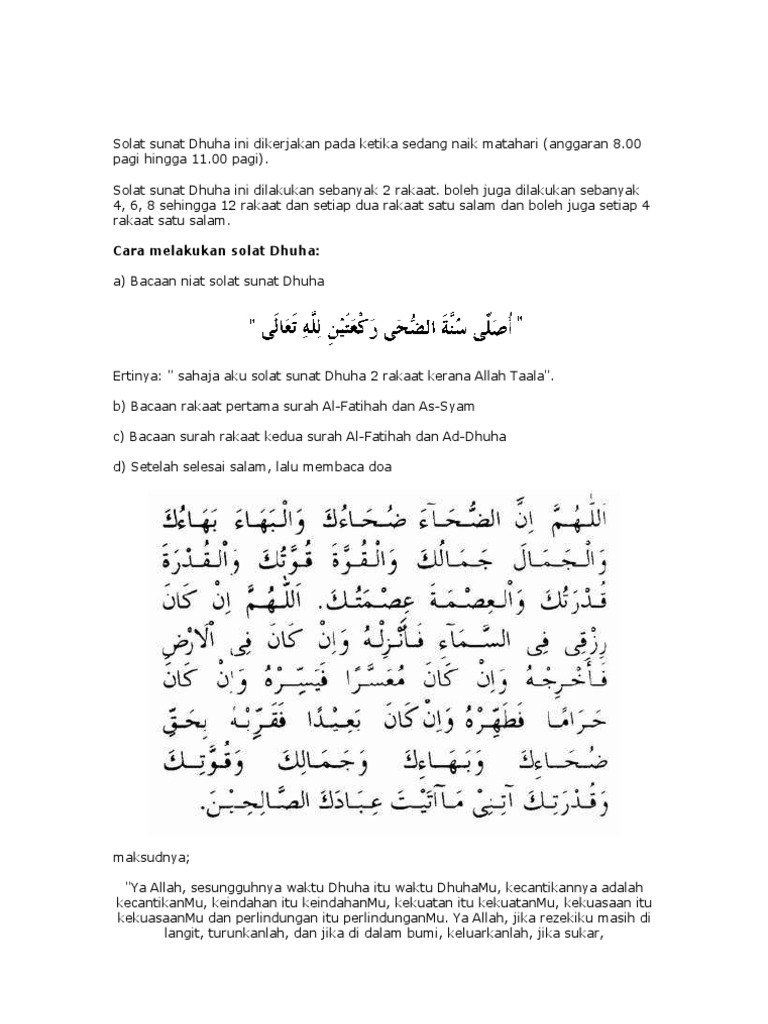 Solat sunat Dhuha ini dikerjakan pada ketika sedang naik matahari (anggaran 8.00
pagi hingga 11.00 pagi).
Solat sunat Dhuha ini dilakukan sebanyak 2 rakaat. boleh juga dilakukan sebanyak
4, 6, 8 sehingga 12 rakaat dan setiap dua rakaat satu salam dan boleh juga setiap 4
rakaat satu salam.
Cara melakukan solat Dhuha:
a) Bacaan niat solat sunat Dhuha
" أُصَلِّى سُنَّةَ الضُّحَى رَكْعَتَيْنِ لِلَّهِ تَعَالَى "
Ertinya: " sahaja aku solat sunat Dhuha 2 rakaat kerana Allah Taala".
b) Bacaan rakaat pertama surah Al-Fatihah dan As-Syam
c) Bacaan surah rakaat kedua surah Al-Fatihah dan Ad-Dhuha
d) Setelah selesai salam, lalu membaca doa
اَللّٰهُمَّ اِنَّ الضُّحَآءَ ضُحَاءُكَ وَالْبَهَاءَ بَهَاءُكَ
وَالْجَمَالَ جَمَالُكَ وَالْقُوَّةَ قُوَّتُكَ وَالْقُدْرَةَ
قُدْرَتُكَ وَالْعِصْمَةَ عِصْمَتُكَ. اَللّٰهُمَّ اِنْ كَانَ
رِزْقِى فِى السَّمَآءِ فَأَنْزِلْهُ وَاِنْ كَانَ فِى اْلاَرْضِ
فَأَخْرِجْهُ وَاِنْ كَانَ مُعَسَّرًا فَيَسِّرْهُ وَاِنْ كَانَ
حَرَامًا فَطَهِّرْهُ وَاِنْ كَانَ بَعِيْدًا فَقَرِّبْهُ بِحَقِّ
ضُحَاءِكَ وَبَهَاءِكَ وَجَمَالِكَ وَقُوَّتِكَ
وَقُدْرَتِكَ آتِنِىْ مَآآتَيْتَ عِبَادَكَ الصَّالِحِيْنَ.
maksudnya;
"Ya Allah, sesungguhnya waktu Dhuha itu waktu DhuhaMu, kecantikannya adalah
kecantikanMu, keindahan itu keindahanMu, kekuatan itu kekuatanMu, kekuasaan itu
kekuasaanMu dan perlindungan itu perlindunganMu. Ya Allah, jika rezekiku masih di
langit, turunkanlah, dan jika di dalam bumi, keluarkanlah, jika sukar,